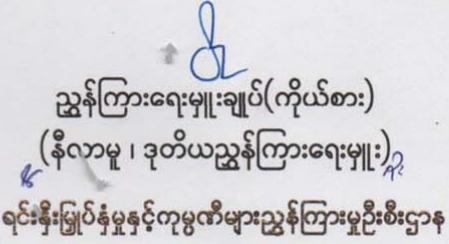 ညွှန်ကြားရေးမှူးချုပ်(ကိုယ်စား)
(နီလာမူ ၊ ဒုတိယညွှန်ကြားရေးမှူး)
ရင်းနှီးမြှုပ်နှံမှုနှင့်ကုမ္ပဏီများညွှန်ကြားမှုဦးစီးဌာန